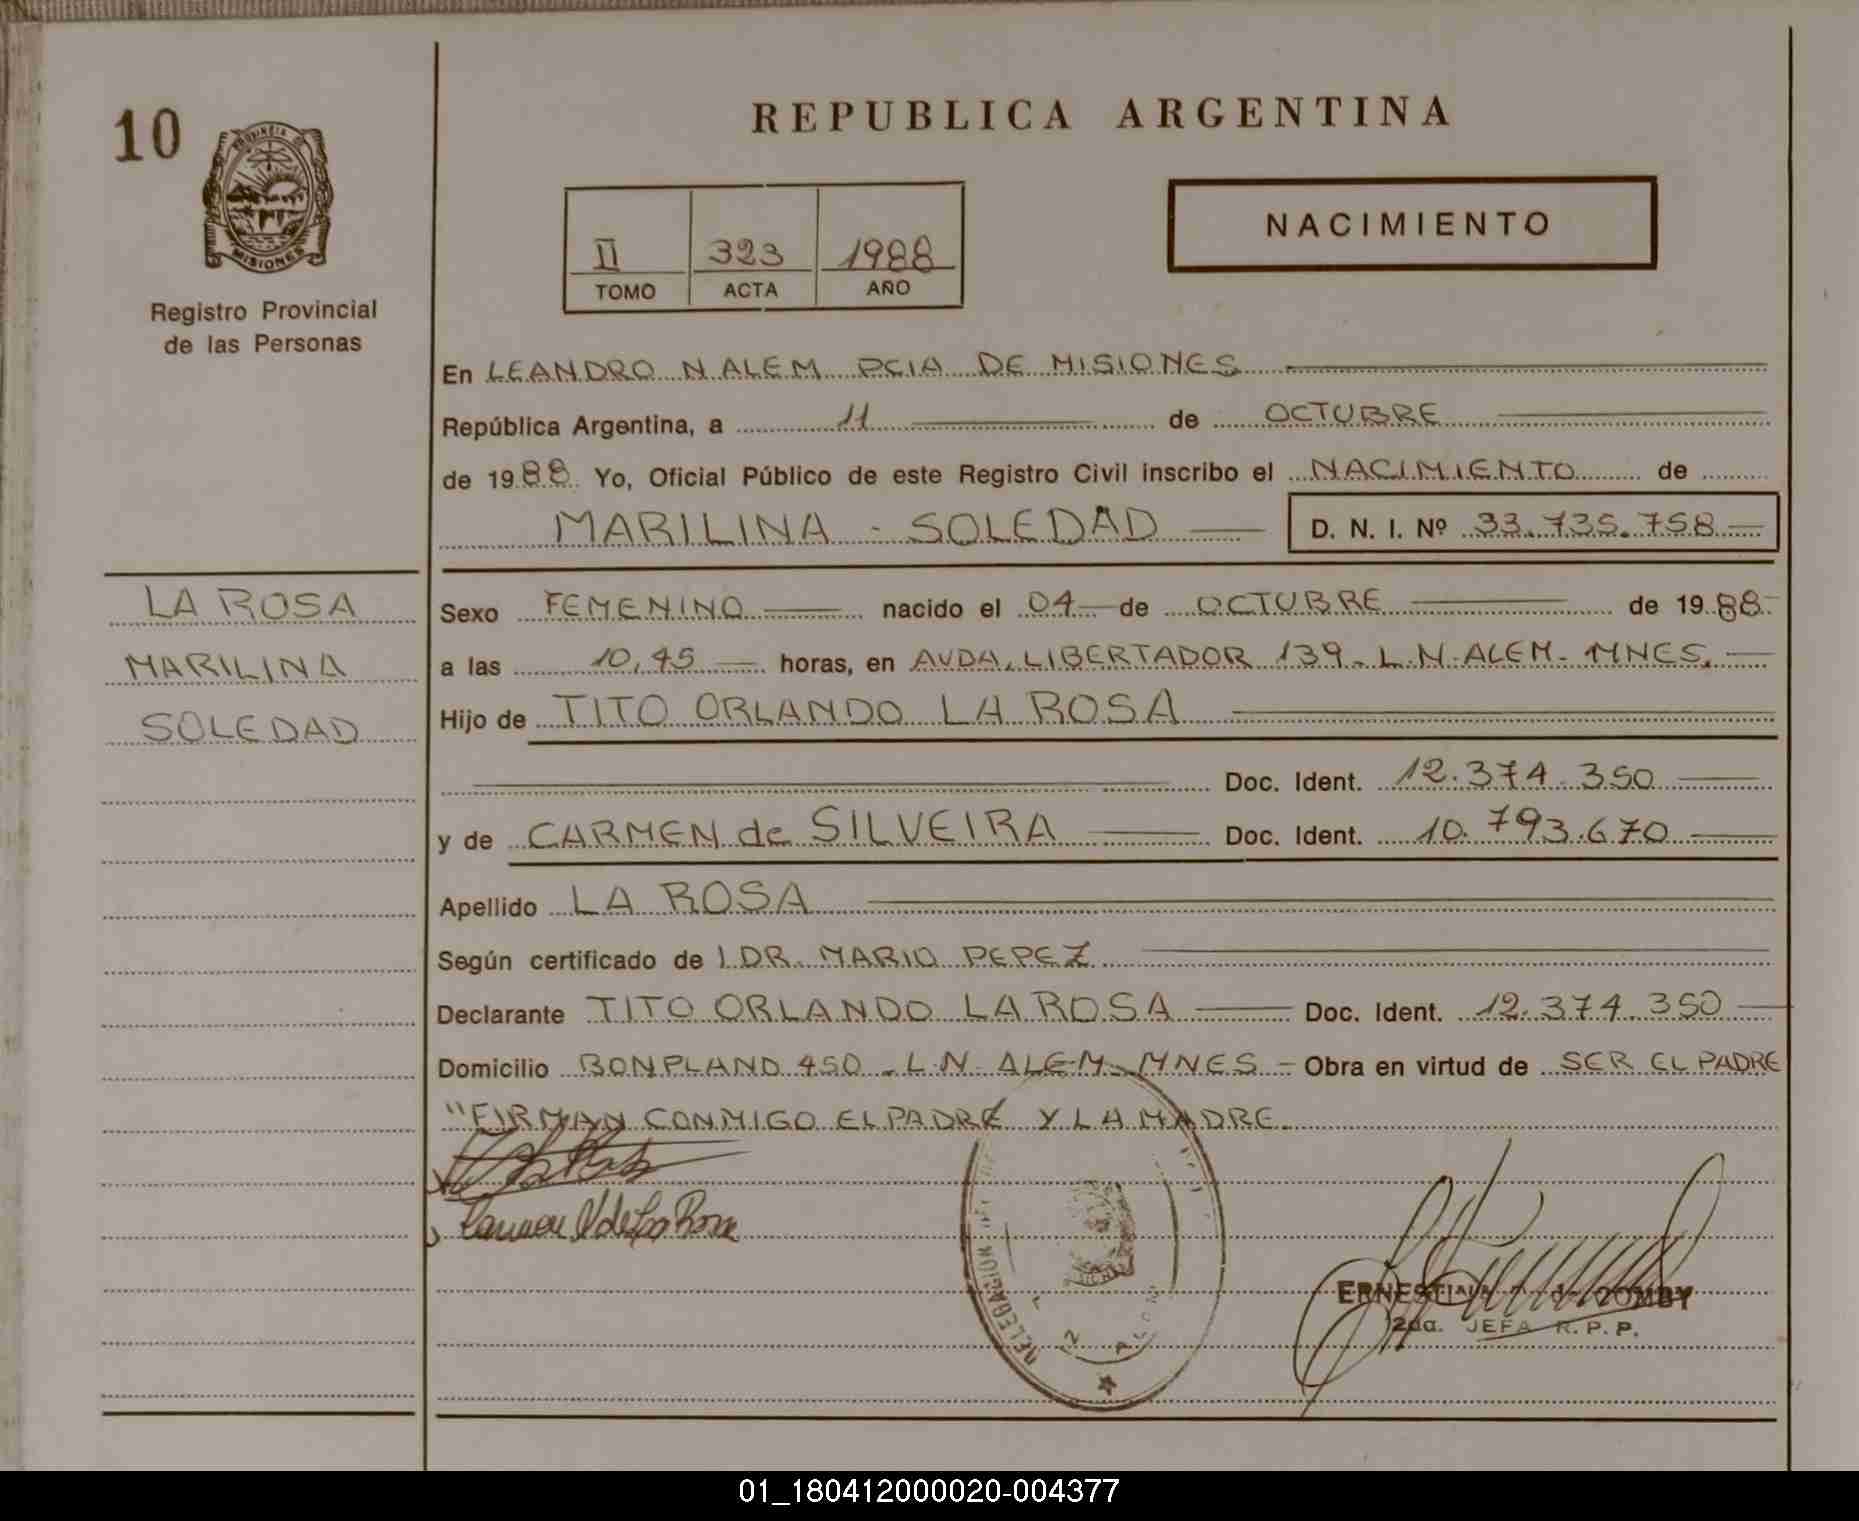 10
PROVINCIA
MISIONES
Registro Provincial
de las Personas
REPUBLICA ARGENTINA
II 323 1988
TOMO ACTA AÑO
NACIMIENTO
En LEANDRO N ALEM PCIA DE MISIONES
República Argentina, a 11 de OCTUBRE
de 1988 Yo, Oficial Público de este Registro Civil inscribo el NACIMIENTO de
MARILINA - SOLEDAD D. N. I. Nº 33.735.758
LA ROSA
MARILINA
SOLEDAD
Sexo FEMENINO nacido el 04 de OCTUBRE de 1988
a las 10,45 horas, en AVDA. LIBERTADOR 139 - L.N. ALEM - MNES.
Hijo de TITO ORLANDO LA ROSA
Doc. Ident. 12.374.350
y de CARMEN de SILVEIRA Doc. Ident. 10.793.670
Apellido LA ROSA
Según certificado de l DR. MARIO PEPEZ
Declarante TITO ORLANDO LA ROSA Doc. Ident. 12.374.350
Domicilio BONPLAND 450 - L.N. ALEM - MNES - Obra en virtud de SER EL PADRE
"FIRMAN CONMIGO EL PADRE Y LA MADRE.
Carmen de La Rosa
DELEGACION
ERNESTINA ZOMBY
2da. JEFA R. P. P.
01_180412000020-004377